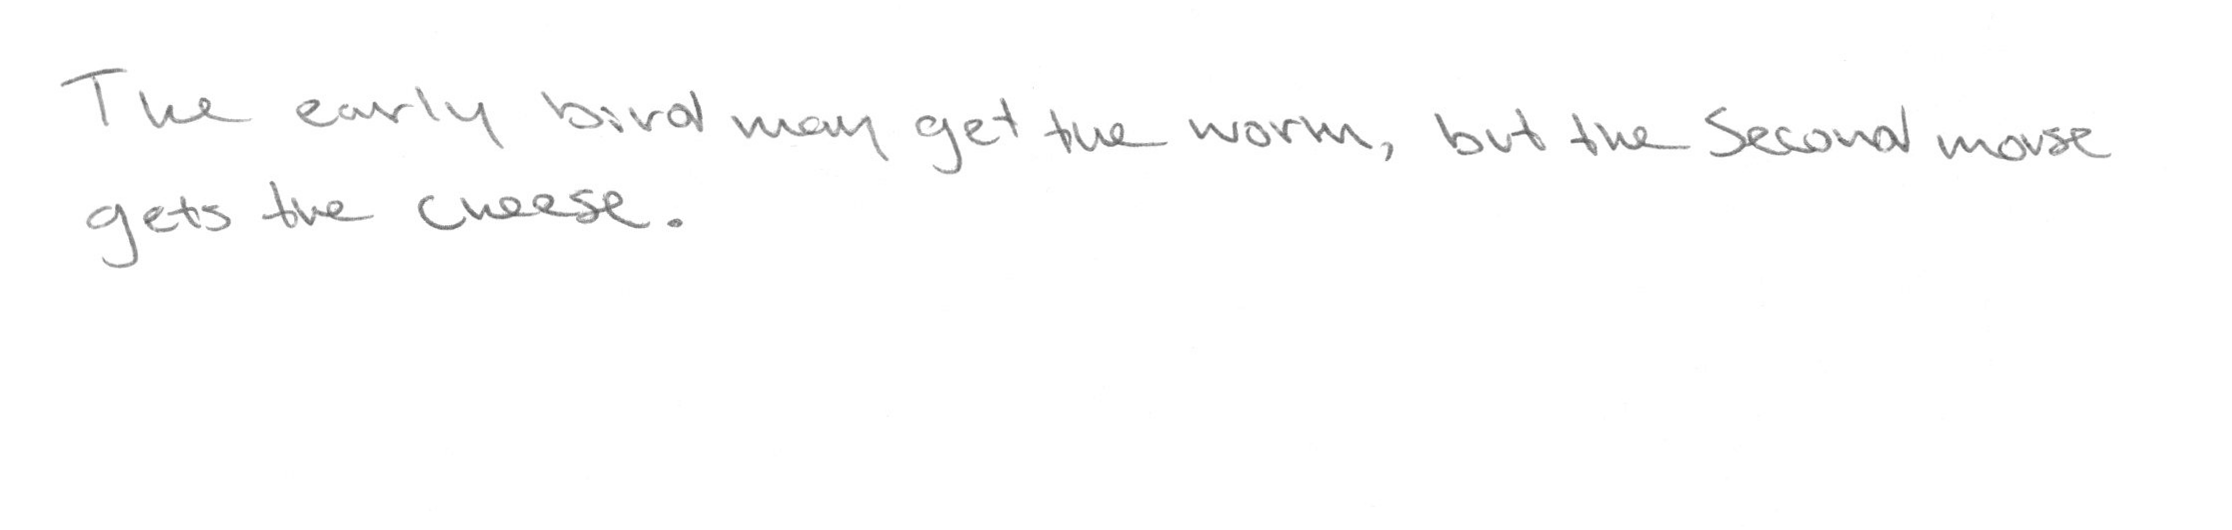 The early bird may get the worm, but the Second mouse
gets the cheese.